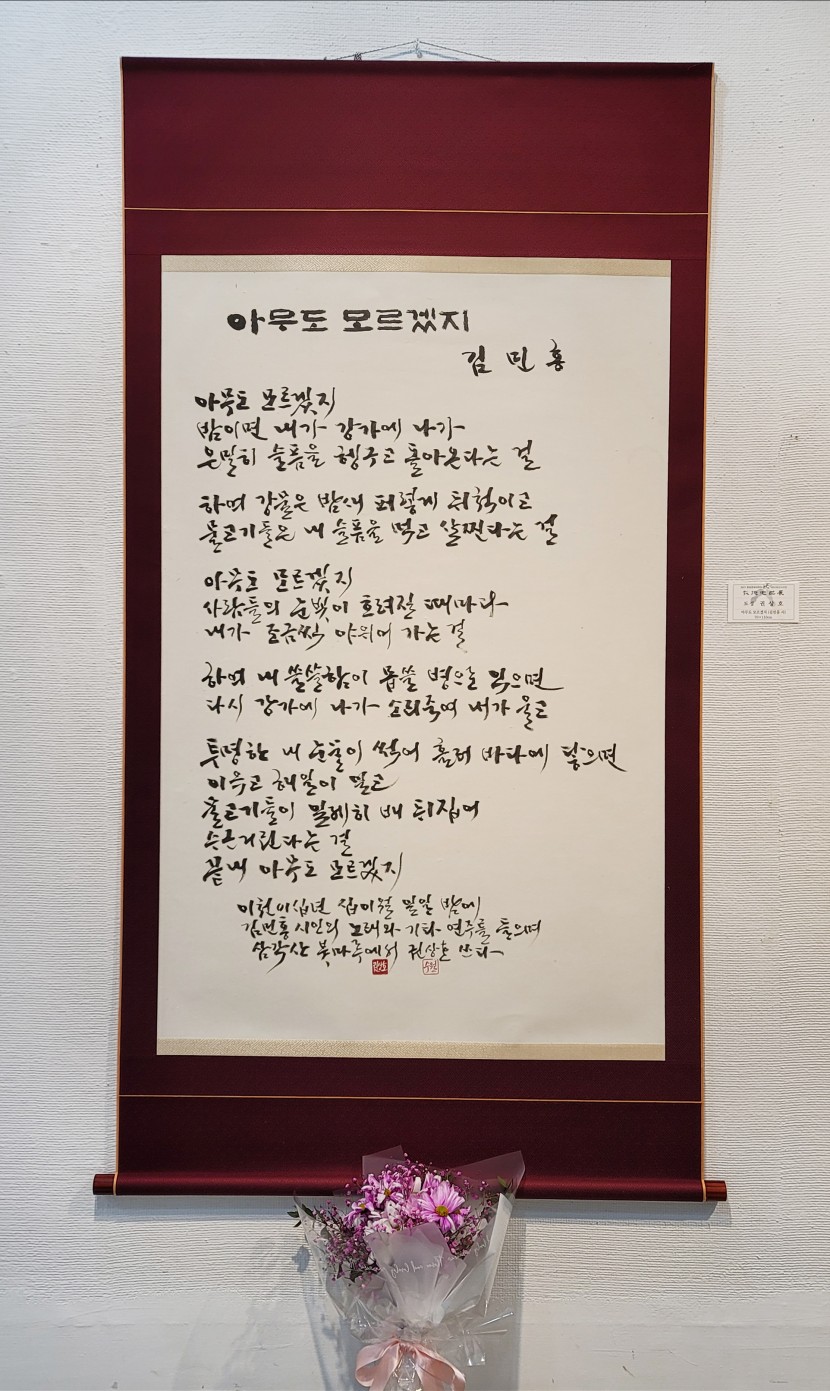 아무도 모르겠지
김 민 홍
아무도 모르겠지
밤이면 내가 강가에 나가
은밀히 슬픔을 헹구고 돌아온다는 걸
하여 강물은 밤새 퍼렇게 뒤척이고
물고기들은 내 슬픔을 먹고 살찐다는 걸
아무도 모르겠지
사람들의 눈빛이 흐려질 때마다
내가 조금씩 야위어 가는 걸
하여 내 쓸쓸함이 몹쓸 병으로 깊으면
다시 강가에 나가 소리죽여 내가 울고
투명한 내 눈물이 썩어 흘러 바다에 닿으면
이윽고 해일이 일고
물고기들이 일제히 배 뒤집어
수근거린다는 걸
끝내 아무도 모르겠지
이천이십년 십이월 밤에
김민홍 시인의 노래와 기타 연주를 들으며
삼각산 붓마루에서 권상호 쓰다
권상호